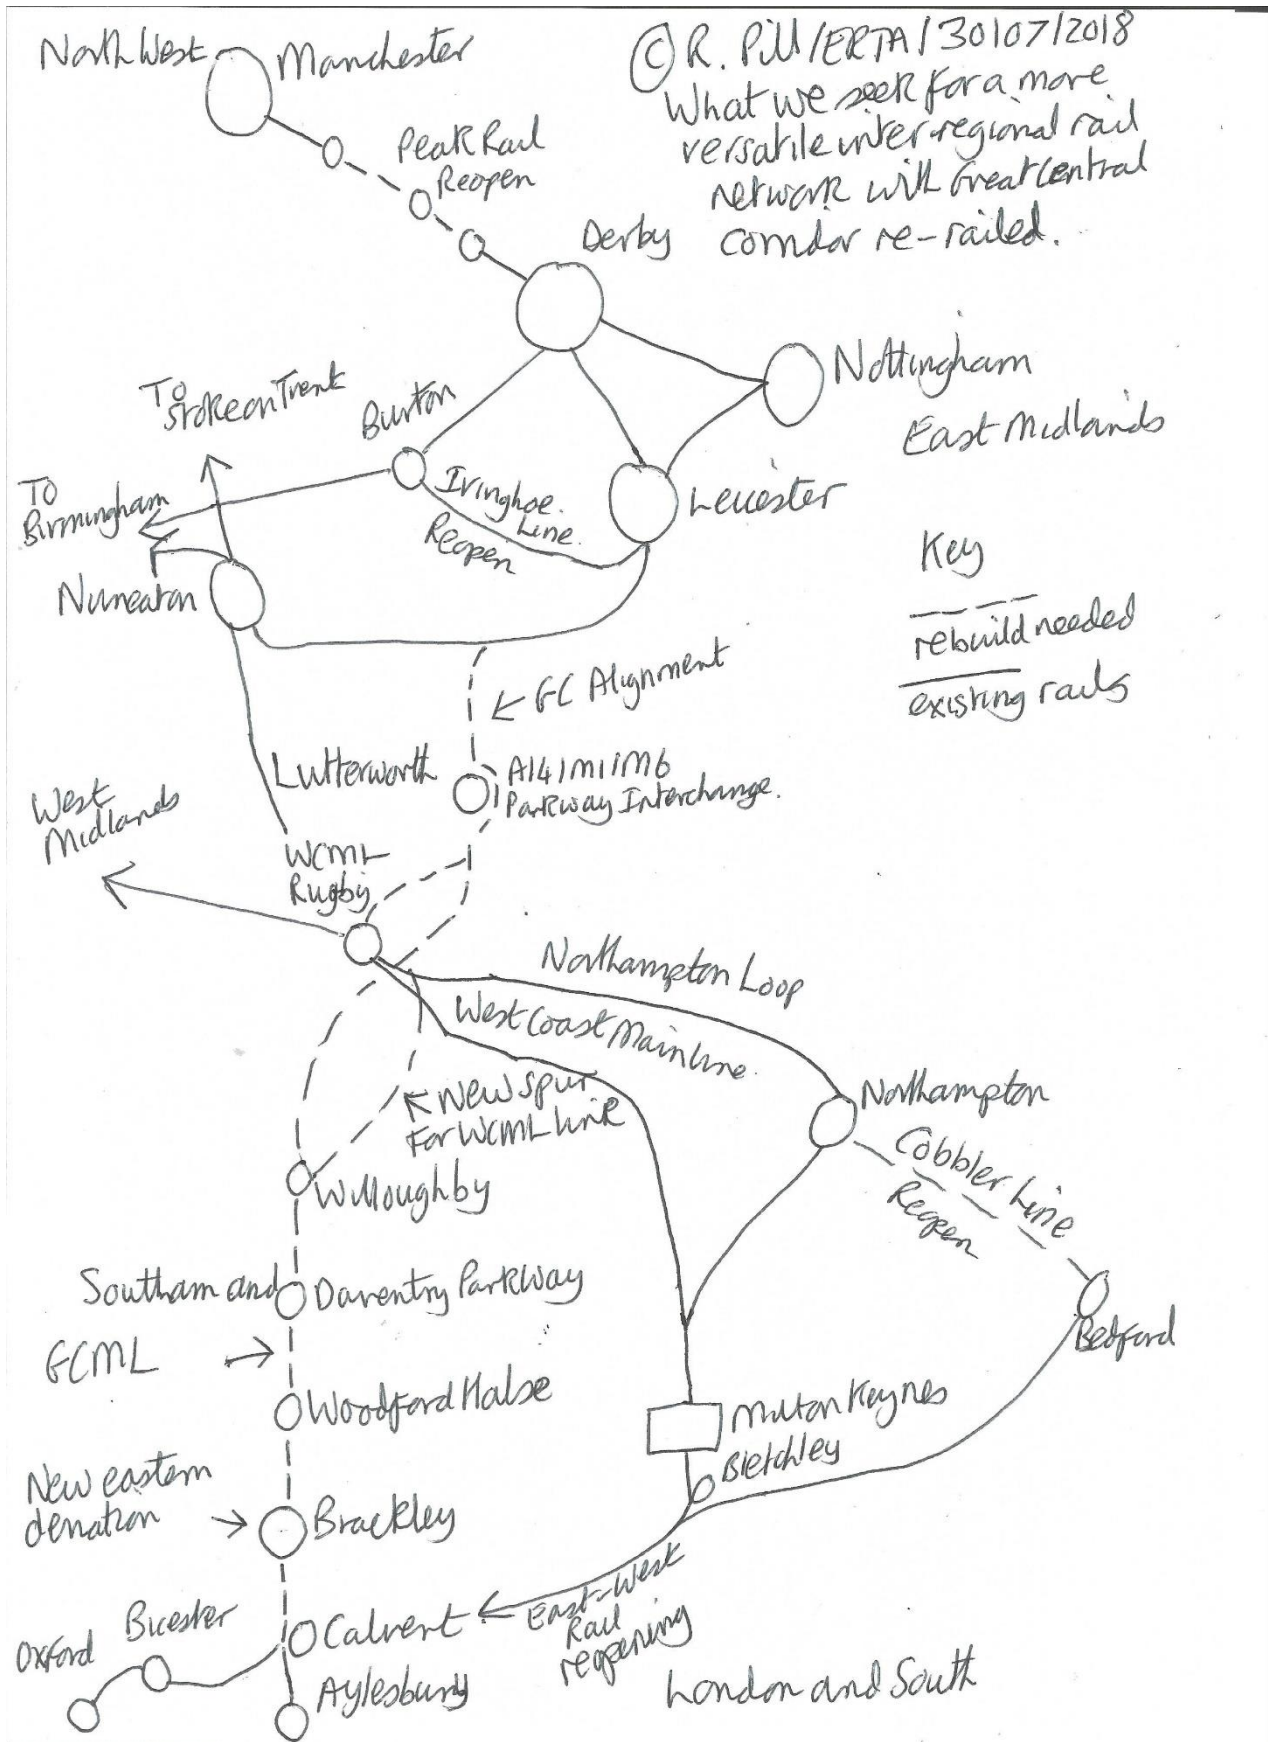 North West
Manchester
© R. Pill/ERTA/30/07/2018
What we seek for a more
versatile inter-regional rail
network with Great Central
corridor re-railed.
Peak Rail
Reopen
Derby
Nottingham
East Midlands
To
Stoke on Trent
Burton
TO
Birmingham
Ivinghoe
Line.
Reopen
Leicester
Key
rebuild needed
existing rails
Nuneaton
GC Alignment
Lutterworth
A14/M1/M6
Parkway Interchange.
West
Midlands
WCML
Rugby
Northampton Loop
West Coast Mainline.
New spur
for WCML link
Northampton
Cobbler Line
Reopen
Willoughby
Southam and
Daventry Parkway
Bedford
GCML
Woodford Halse
Milton Keynes
Bletchley
New eastern
deviation
Brackley
East-West
Rail
reopening
Calvert
Bicester
Oxford
Aylesbury
London and South